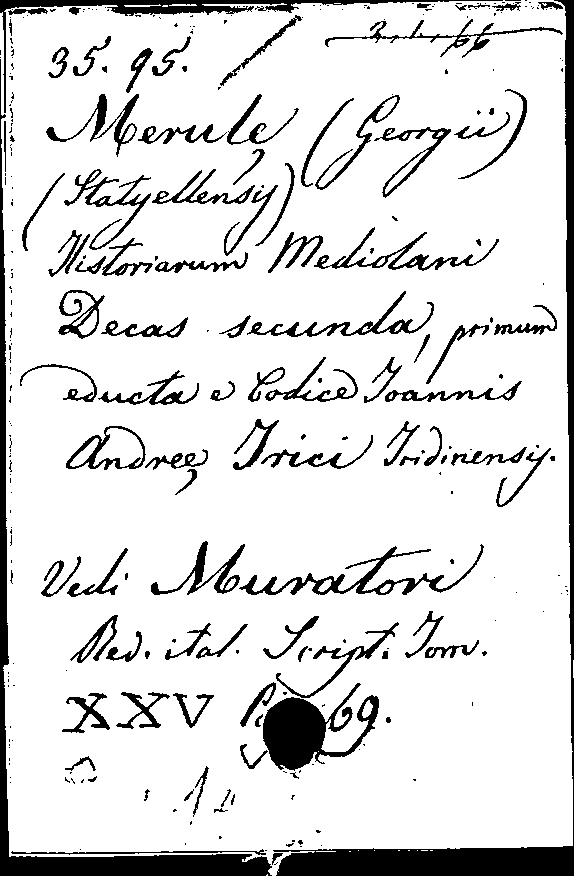 35. 95.
Merulę (Georgii)
(Statyellensij)
Historiarum Mediolani
Decas secunda, primum
educta e Codice Joannis
Andreę Irici Tridinensij.
Vedi Muratori
Rer. ital. Script. Tom.
XXV 69.